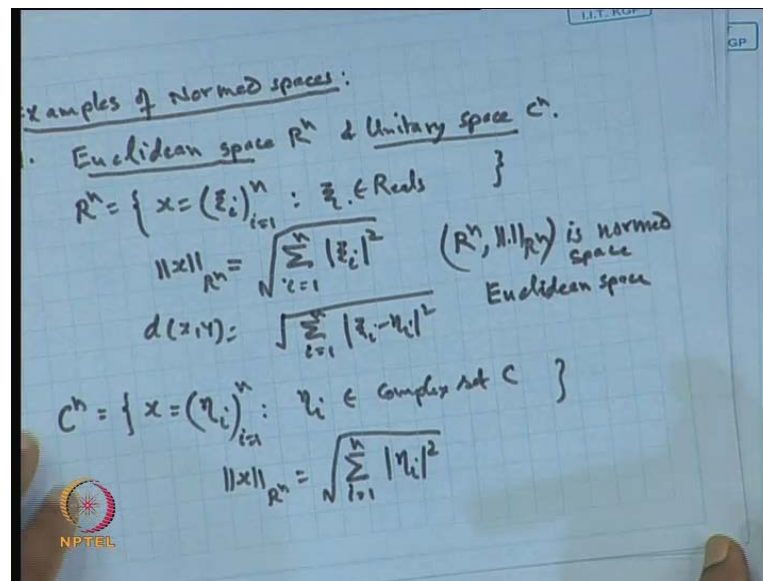 I.I.T. KGP
GP
xamples of Normed spaces:
1. Euclidean space R^n & Unitary space C^n.
R^n = { x = (ξ_i)_{i=1}^n : ξ_i ∈ Reals }
||x||_{R^n} = √(∑_{i=1}^n |ξ_i|^2) (R^n, ||.||_{R^n}) is normed space
d(x,y) = √(∑_{i=1}^n |ξ_i-η_i|^2) Euclidean space
C^n = { x = (η_i)_{i=1}^n : η_i ∈ Complex set C }
||x||_{R^n} = √(∑_{i=1}^n |η_i|^2)
NPTEL